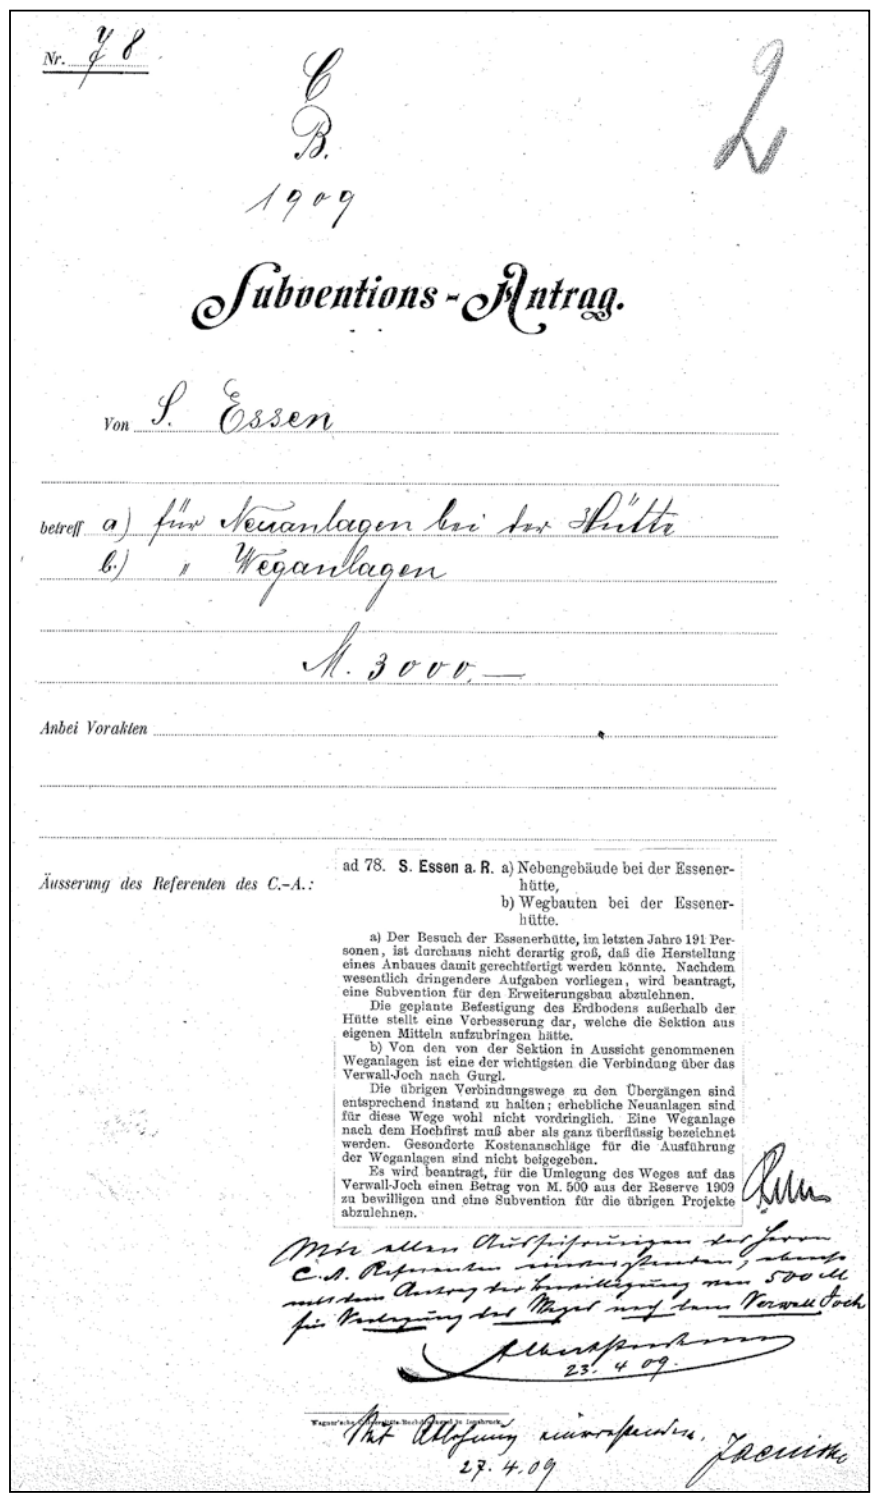 Nr. 78
C
B.
1909
2
Subventions-Antrag.
Von S. Essen
betreff a) für Neuanlagen bei der Hütte
b.) " Weganlagen
M. 3000.—
Anbei Vorakten
Äusserung des Referenten des C.-A.:
ad 78. S. Essen a. R. a) Nebengebäude bei der Essener-
hütte,
b) Wegbauten bei der Essener-
hütte.
a) Der Besuch der Essenerhütte, im letzten Jahre 191 Per-
sonen, ist durchaus nicht derartig groß, daß die Herstellung
eines Anbaues damit gerechtfertigt werden könnte. Nachdem
wesentlich dringendere Aufgaben vorliegen, wird beantragt,
eine Subvention für den Erweiterungsbau abzulehnen.
Die geplante Befestigung des Erdbodens außerhalb der
Hütte stellt eine Verbesserung dar, welche die Sektion aus
eigenen Mitteln aufzubringen hätte.
b) Von den von der Sektion in Aussicht genommenen
Weganlagen ist eine der wichtigsten die Verbindung über das
Verwall-Joch nach Gurgl.
Die übrigen Verbindungswege zu den Übergängen sind
entsprechend instand zu halten; erhebliche Neuanlagen sind
für diese Wege wohl nicht vordringlich. Eine Weganlage
nach dem Hochfirst muß aber als ganz überflüssig bezeichnet
werden. Gesonderte Kostenanschläge für die Ausführung
der Weganlagen sind nicht beigegeben.
Es wird beantragt, für die Umlegung des Weges auf das
Verwall-Joch einen Betrag von M. 500 aus der Reserve 1909
zu bewilligen und eine Subvention für die übrigen Projekte
abzulehnen.
Mit allen Ausführungen des Herrn
C. A. Referenten einverstanden, ebenso
mit dem Antrag der Bewilligung von 500 M
für Verlegung des Weges nach dem Verwall Joch
23. 4 09.
Wagner'sche Universitäts-Buchdruckerei in Innsbruck.
Mit Ablehnung einverstanden.
27. 4. 09